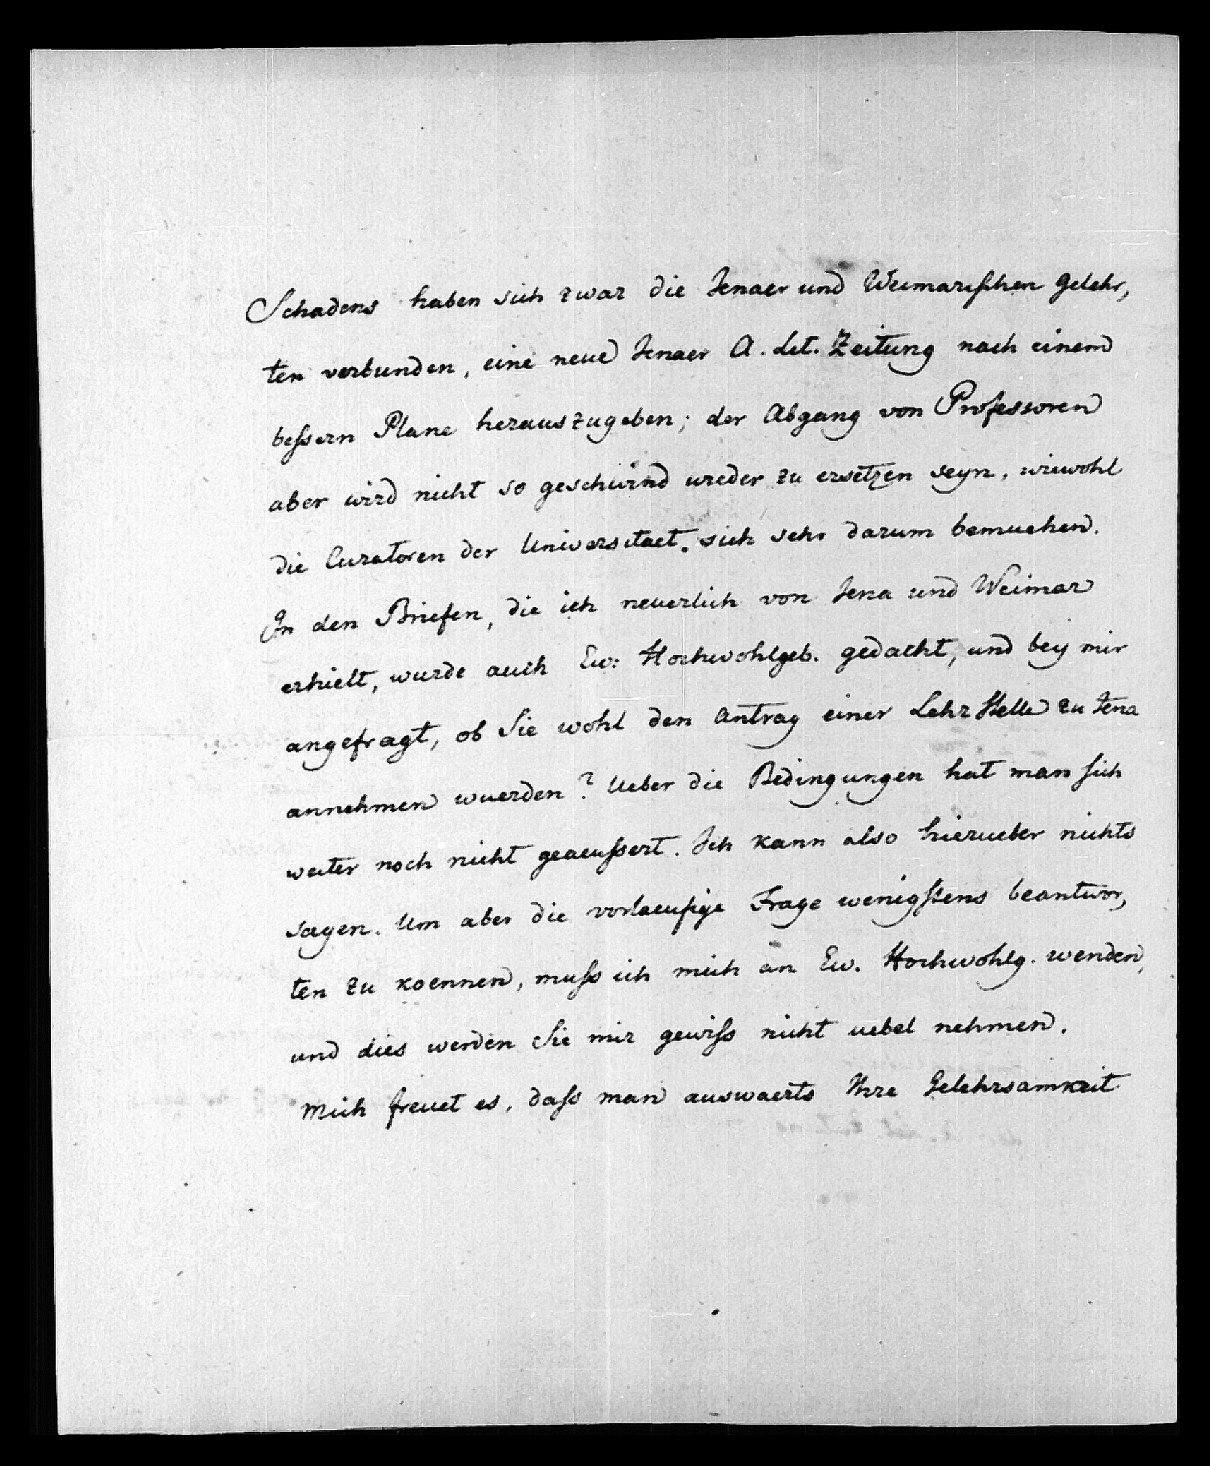 Schadens haben sich zwar die Jenaer und Weimarischen Gelehr,
ten verbunden, eine neue Jenaer A. Lit. Zeitung nach einem
beſsern Plane herauszugeben; der Abgang von Profeſsoren
aber wird nicht so geschwind wieder zu ersetzen seyn, wiewohl
die Curatoren der Universitaet sich sehr darum bemuehen.
In den Briefen, die ich neuerlich von Jena und Weimar
erhielt, wurde auch Ew: Hochwohlgeb. gedacht, und bey mir
angefragt, ob Sie wohl den Antrag einer Lehrstelle zu Jena
annehmen wuerden? Ueber die Bedingungen hat man sich
weiter noch nicht geaeuſsert. Ich kann also hierueber nichts
sagen. Um aber die vorlaeufige Frage wenigstens beantwor,
ten zu koennen, muſs ich mich an Ew. Hochwohlg. wenden,
und dies werden Sie mir gewiſs nicht uebel nehmen.
Mich freuet es, daſs man auswaerts Ihre Gelehrsamkeit